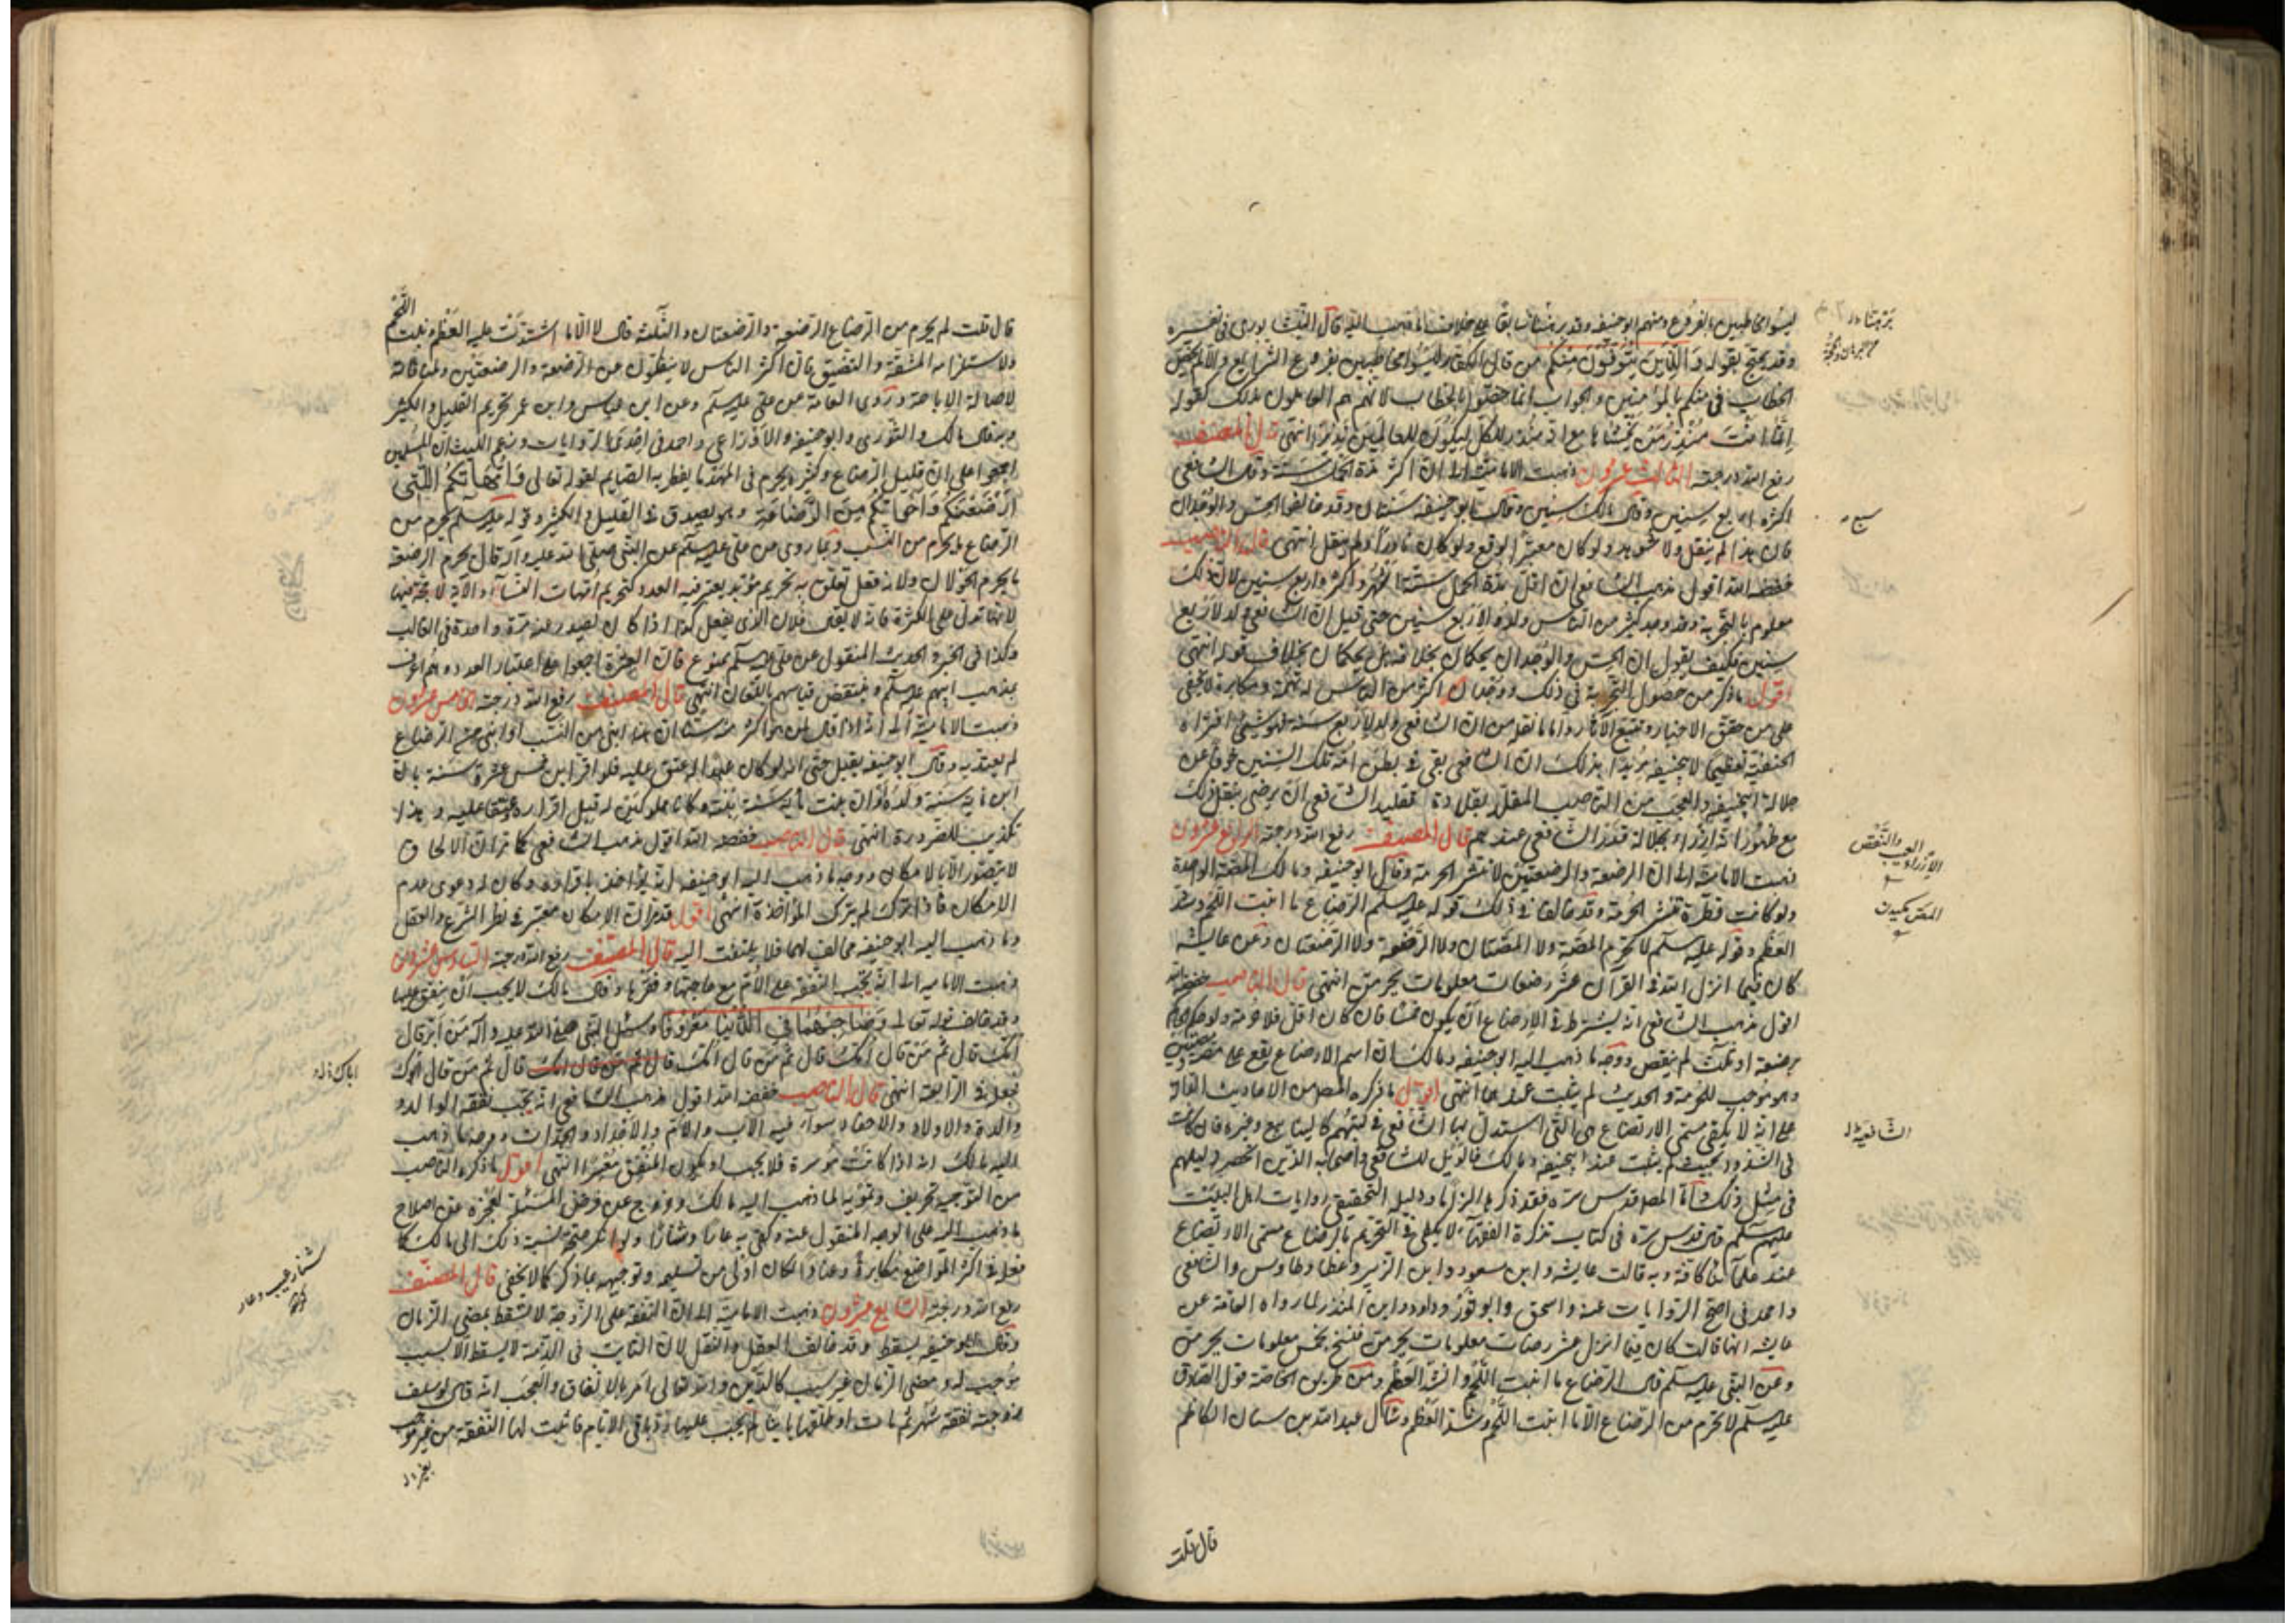 ليسوا مخاطبين بالفروع ومنهم ابو حنيفه وقد بينا سابقا خلاف ما ذهب اليه قال النيشابوري في تفسيره
وقد يحتج بقوله وَالَّذِينَ يُتَوَفَّوْنَ مِنْكُمْ من قال الكفار ليسوا مخاطبين بفروع الشرايع والا لم يختص
الخطاب في منكم بالمؤمنين والجواب انما خصوا بالخطاب لانهم هم العاملون بذلك كقوله
إِنَّمَا أَنْتَ مُنْذِرُ مَنْ يَخْشَاهَا مع انه منذر للكل ليكون للعالمين نذيرا انتهى قال المصنف
رفع الله درجته الثالث عشرون ذهبت الامامية الى ان اكثر مدة الحمل سنة وقال الشافعي
اكثره اربع سنين وقال مالك سنين وقال ابو حنيفه سنتان وقد خالفا الحس والوجدان
فان هذا لم ينقل ولا شوهد ولو كان معتبر الوقع ولو كان نادرا ولنقل انتهى قال الناصب
خفضه الله اقول مذهب الشافعي ان اقل مدة الحمل ستة اشهر واكثره اربع سنين لان ذلك
معلوم بالتجربة وقد وجد كثير من الناس ولدوا لاربع سنين حتى قيل ان الشافعي ولد لاربع
سنين فكيف يقول ان الحس والوجدان يحكمان بخلافه بل يحكمان بخلاف قوله انتهى
اقول ما ذكر من حصول التجربة في ذلك ووجدان اكثر من الناس له تهمة ومكابرة لا يخفى
على من حقق الاخبار وتتبع الآثار واما ما نقل من ان الشافعي ولد لاربع سنة فهو شيء افتراه
الحنفية تعظيما لابي حنيفه يريدون بذلك ان الشافعي بقي في بطن امه تلك السنين خوفا عن
جلالة ابي حنيفه والعجب من الناصب المقلد بقلادة تقليد الشافعي ان يرضى بنقل ذلك
مع ظهور انه ازراء بجلالة قدر الشافعي عندهم قال المصنف رفع الله درجته الرابع عشرون
ذهبت الامامية الى ان الرضعة والرضعتين لا تنشر الحرمة وقال ابو حنيفه ومالك المصة الواحدة
ولو كانت قطرة تنشر الحرمة وقد خالفا في ذلك قوله عليه السلام الرضاع ما انبت اللحم وشد
العظم وقوله عليه سلم لا تحرم المصة ولا المصتان ولا الرضعة ولا الرضعتان وعن عايشه
كان فيما انزل الله في القرآن عشر رضعات معلومات يحرمن انتهى قال الناصب خفضه الله
اقول مذهب الشافعي انه يشترط في الارضاع ان يكون خمسا فان كان اقل فلا حرمة
برضعة او ثلث لم ينقض ووجه ما ذهب اليه ابو حنيفه ومالك ان اسم الارضاع يقع على
وهو موجب للحرمة والحديث لم يثبت عندهما انتهى اقول ما ذكره المصنف من الاحاديث
على انه لا يكفي مسمى الارتضاع هي التي استدل بها الشافعي في كتبهم كالينابيع وغيره فان كانت
في الشذوذ بحيث لم يثبت عند ابي حنيفه ومالك فالويل للشافعي واصحابه الذين انحصر دليلهم
في مثل ذلك واما المصنف قدس سره فقد ذكرها الزاما ودليله التحقيقي روايات اهل البيت
عليهم سلم قال قدس سره في كتاب تذكرة الفقهاء لا يكفي في التحريم بالرضاع مسمى الارتضاع
عند علمائنا كافة وبه قالت عايشه وابن مسعود وابن الزبير وعطا وطاوس والشافعي
واحمد في اصح الروايات عنه واسحق وابو ثور وداود وابن المنذر لما رواه العامة عن
عايشه انها قالت كان فيما انزل عشر رضعات معلومات يحرمن فنسخ بخمس معلومات يحرمن
وعن النبي عليه سلم قال الرضاع ما انبت اللحم وانشز العظم ومن طريق الخاصة قول الصادق
عليه سلم لا يحرم من الرضاع الا ما انبت اللحم وشد العظم وسأل عبد الله بن سنان الكاظم
قال قلت
الازراء العيب والنقص
المص مكيدن
الشافعية
قال قلت لم يحرم من الرضاع الرضعة والرضعتان والثلث قال لا الا ما اشتدت عليه العظم ونبت اللحم
ولاستلزامه المشقة والتضيق فان اكثر الناس لا ينفكون عن الرضعة والرضعتين ولمنافاته
لاصالة الاباحة وروى العامة من علي عليه سلم وعن ابن عباس وابن عمر تحريم القليل والكثير
وبه قال مالك والثوري وابو حنيفه والاوزاعي واحمد في احدى الروايات وزعم الليث ان المسلمين
اجمعوا على ان قليل الرضاع وكثيره يحرم في المهد ما يفطر به الصايم لقوله تعالى وَأُمَّهَاتُكُمُ اللَّاتِي
أَرْضَعْنَكُمْ وَأَخَوَاتُكُمْ مِنَ الرَّضَاعَةِ وهو يصدق في القليل والكثير وقوله عليه سلم يحرم من
الرضاع ما يحرم من النسب وبما روى من علي عليه سلم عن النبي صلى الله عليه وآله قال يحرم الرضعة
ما يحرم الحولان ولانه فعل تعلق به تحريم مؤبد يعتبر فيه العدد كتحريم امهات النساء والآية لا حجة فيها
لانها تدل على الكثرة فانه لا يقال فلان الذي يفعل كذا اذا كان لصدر عنه مرة واحدة في الغالب
وكذا في الخبر والحديث المنقول عن علي عليه سلم ممنوع فان العترة اجمعوا على اعتبار العدد وهم اعرف
بمذهب ابيهم عليه سلم وينتقض قياسهم باللعان انتهى قال المصنف رفع الله درجته الخامس عشرون
ذهبت الامامية الى انه اذا قال لمن هو اكثر منه سنا ان هذا ابني من النسب او ابني من الرضاع
لم يعتد به وقال ابو حنيفه يقبل حتى انه لو كان عبدا له عتق عليه فلو اقر ابن خمس عشرة سنة بان
ابن ماية سنة ولده وان بنت ماية سنة بنته وكانا مملوكين له قبل اقراره وعتقا عليه وهذا
تكذيب للضرورة انتهى قال الناصب خفضه الله اقول مذهب الشافعي كما مر ان الالحاق
لا يتصور الا بالامكان ووجه ما ذهب اليه ابو حنيفه انه يؤاخذ باقراره وكان له دعوى عدم
الامكان فاذا ترك لم يترك المؤاخذة انتهى اقول قد مر ان الامكان معتبر في نظر الشرع والعقل
وما ذهب اليه ابو حنيفه مخالف لهما فلا يلتفت اليه قال المصنف رفع الله درجته السادس عشرون
ذهبت الامامية الى انه يجب النفقة على الام مع حاجتها وفقرها وقال مالك لا يجب ان ينفق عليها
وقد خالف قوله تعالى وَصَاحِبْهُمَا فِي الدُّنْيَا مَعْرُوفًا وسئل النبي صلى الله عليه وآله من ابر قال
امك قال ثم من قال امك قال ثم من قال امك قال ثم من قال امك قال ثم من قال ابوك
فجعله في الرابعة انتهى قال الناصب خفضه الله اقول مذهب الشافعي انه يجب نفقة الوالد و
والدة والاولاد والاحفاد سواء فيه الاب والام والاجداد والجدات ووجه ما ذهب
اليه مالك انه اذا كانت موسرة فلا يجب او يكون المنفق معسرا انتهى اقول ما ذكره الناصب
من التوجيه تحريف وتمويه لما ذهب اليه مالك وخروج عن فرض المسئلة لعجزه عن اصلاح
ما ذهب اليه على الوجه المنقول عنه وكفى به عارا وشنارا ولو انكر صحة نسبة ذلك الى مالك كما
فعل في اكثر المواضع مكابرة وعنادا لكان اولى من تسليمه وتوجيهه بما ذكر كما لا يخفى قال المصنف
رفع الله درجته السابع عشرون ذهبت الامامية الى ان النفقة على الزوجة لا تسقط بمضي الزمان
وقال ابو حنيفه يسقط وقد خالف العقل والنقل لان الثابت في الذمة لا يسقط الا بسبب
موجب له ومضي الزمان غير سبب كالدين والله تعالى امر بالانفاق والعجب انه قال لو سلف
زوجته نفقة شهر ثم مات او طلقها باينا لم يجب عليها رد باقي الايام فاثبت لها النفقة من غير موجب
شنار عيب وعار